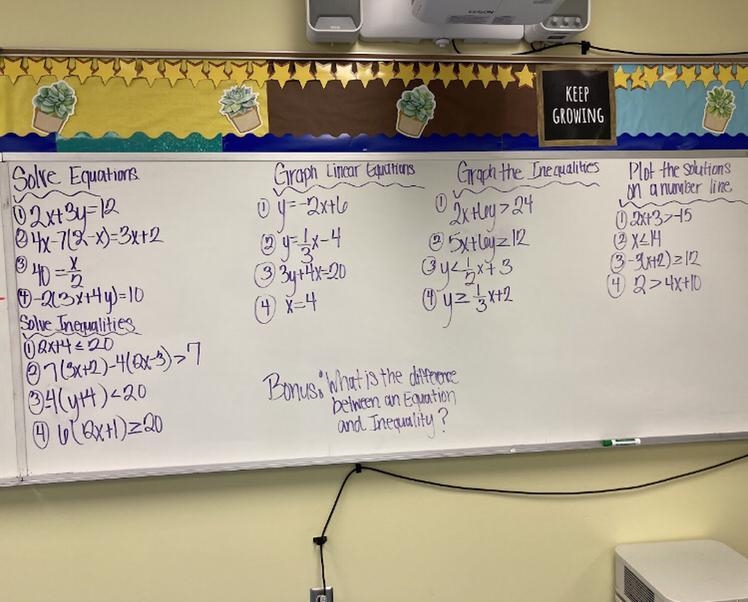 EPSON
KEEP
GROWING
Solve Equations
① 2x+3y=12
② 4x-7(2-x)=3x+2
③ 40=x/2
④ -2(3x+4y)=10
Solve Inequalities
① 2x+4≤20
② 7(3x+2)-4(2x-3)>7
③ -4(y+4)<20
④ 6(2x+1)≥20
Graph Linear Equations
① y=-2x+6
② y=1/3x-4
③ 3y+4x=20
④ x=4
Graph the Inequalities
① 2x+6y>24
② 5x+6y≥12
③ y<1/2x+3
④ y≥1/3x+2
Plot the solutions
on a number line
① 2x+3>-15
② x≤14
③ -3(x+2)≥12
④ 2>4x+10
Bonus: What is the difference
between an Equation
and Inequality?